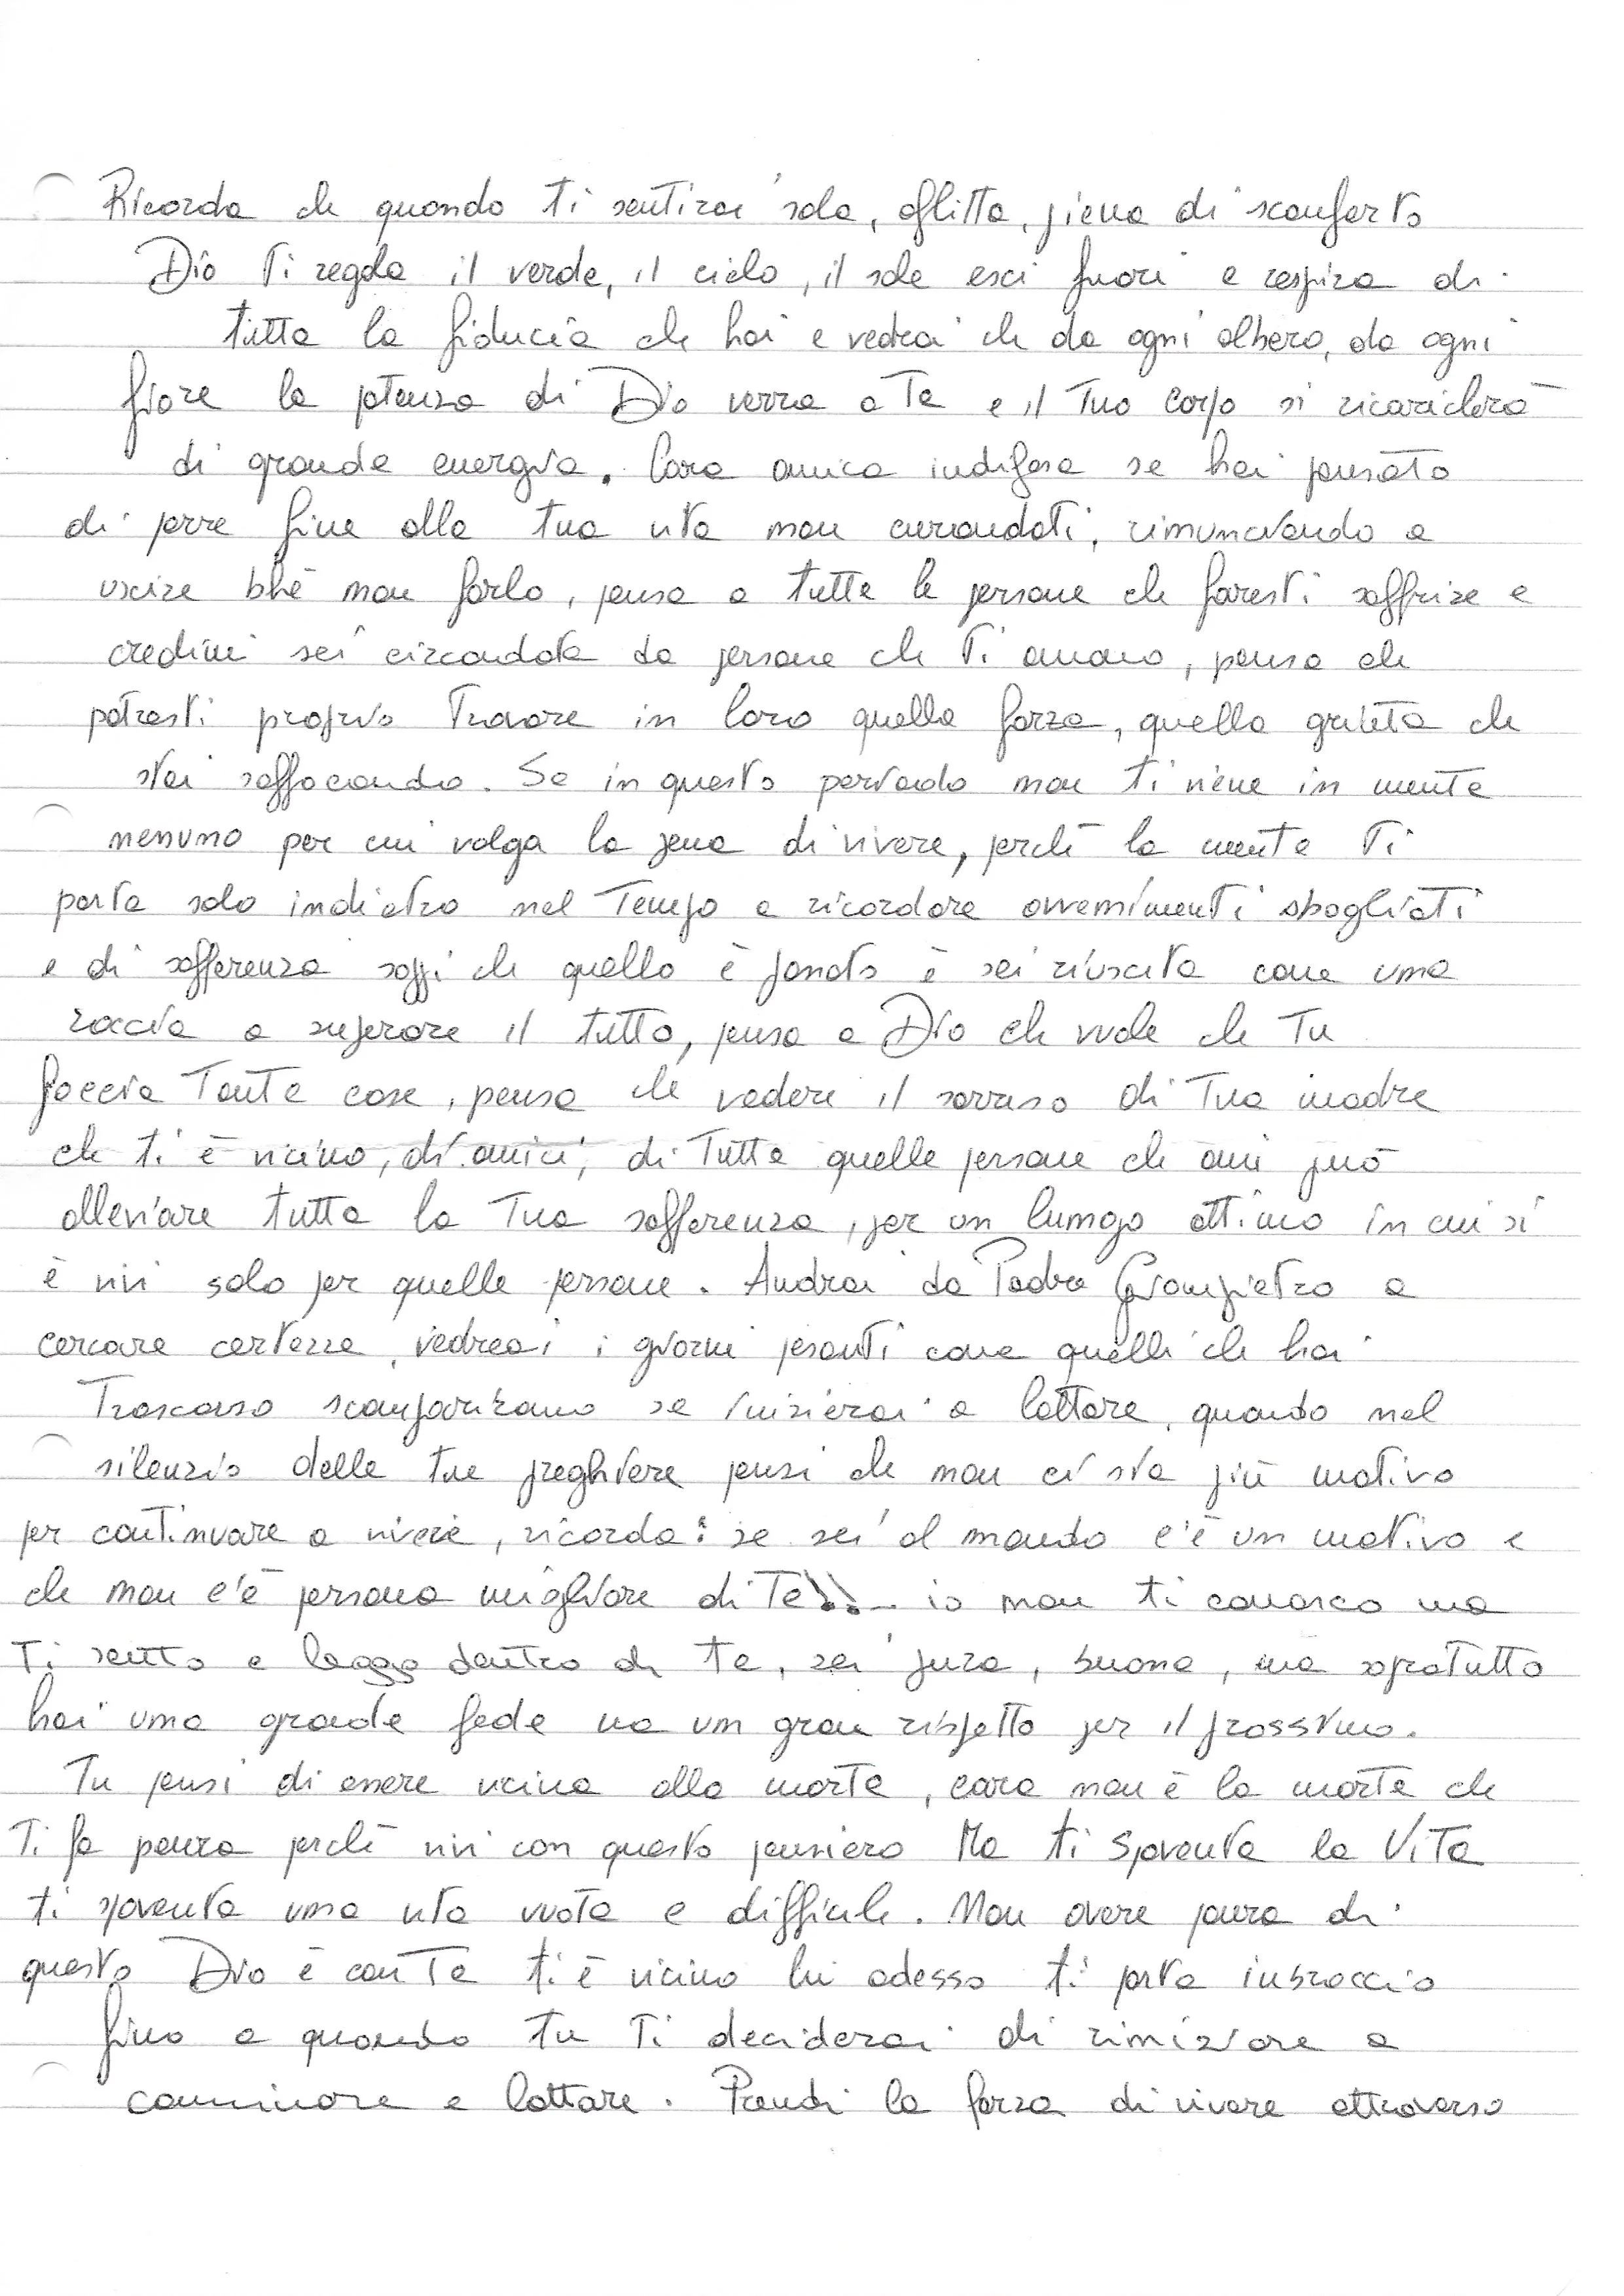 Ricorda che quando ti sentirai sola, afflitta, piena di sconforto
Dio ti regala il verde, il cielo, il sole esci fuori e respira di
tutta la fiducia che hai e vedrai che da ogni albero, da ogni
fiore la potenza di Dio verra a Te e il Tuo corpo si ricaricherà
di grande energia. Cara amica indifesa se hai pensato
di porre fine alla tua vita non curandoti, rinunciando a
uscire bhè non farlo, pensa a tutte le persone che faresti soffrire e
credimi sei circondata da persone che Ti amano, pensa che
potresti proprio Trovare in loro quella forza, quella grinta che
stai soffocando. Se in questo periodo non ti viene in mente
nessuno per cui valga la pena di vivere, perché la mente Ti
porta solo indietro nel Tempo a ricordare avvenimenti sbagliati
e di sofferenza sappi che quello è passato è sei riuscita come una
roccia a superare il tutto, pensa a Dio che vuole che Tu
faccia Tante cose, pensa che vedere il sorriso di Tua madre
che ti è vicino, di amici, di Tutte quelle persone che ami può
alleviare tutta la Tua sofferenza, per un lungo attimo in cui si
è vivi solo per quelle persone. Andrai da Padre Giampietro a
cercare certezze, vedreai i giorni pesanti come quelli che hai
Trascorso scompariranno se inizierai a lottare, quando nel
silenzio delle tue preghiere pensi che non ci sia più motivo
per continuare a vivere, ricorda: se sei al mondo c'è un motivo e
che non c'è persona migliore di Te!! io non ti conosco ma
Ti sento e leggo dentro di te, sei pura, buona, ma sopratutto
hai una grande fede un gran rispetto per il prossimo.
Tu pensi di essere vicina alla morte, cara non è la morte che
Ti fa paura perché vivi con questo pensiero Ma ti spaventa la ViTa
ti spaventa una vita vuota e difficile. Non avere paura di
questo Dio è con Te ti è vicino lui adesso ti porta inbraccio
fino a quando tu Ti deciderai di riniziare a
camminare e lottare. Prendi la forza di vivere attraverso